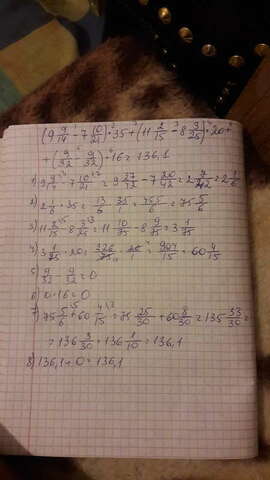 (9 9/14 - 7 10/21) · 35 + (11 2/15 - 8 3/25) · 20 +
+ (9/32 - 9/32) · 16 = 136,1
1) 9 9/14 - 7 10/21 = 9 27/42 - 7 20/42 = 2 7/42 = 2 1/6
2) 2 1/6 · 35 = 13/6 · 35/1 = 75 5/6 = 75 5/6
3) 11 2/15 - 8 3/25 = 11 10/75 - 8 9/75 = 3 1/75
4) 3 1/75 · 20 = 226/75 · 20/1 = 904/15 = 60 4/15
5) 9/32 - 9/32 = 0
6) 0 · 16 = 0
7) 75 5/6 + 60 4/15 = 75 25/30 + 60 8/30 = 135 33/30 =
= 136 3/30 = 136 1/10 = 136,1
8) 136,1 + 0 = 136,1